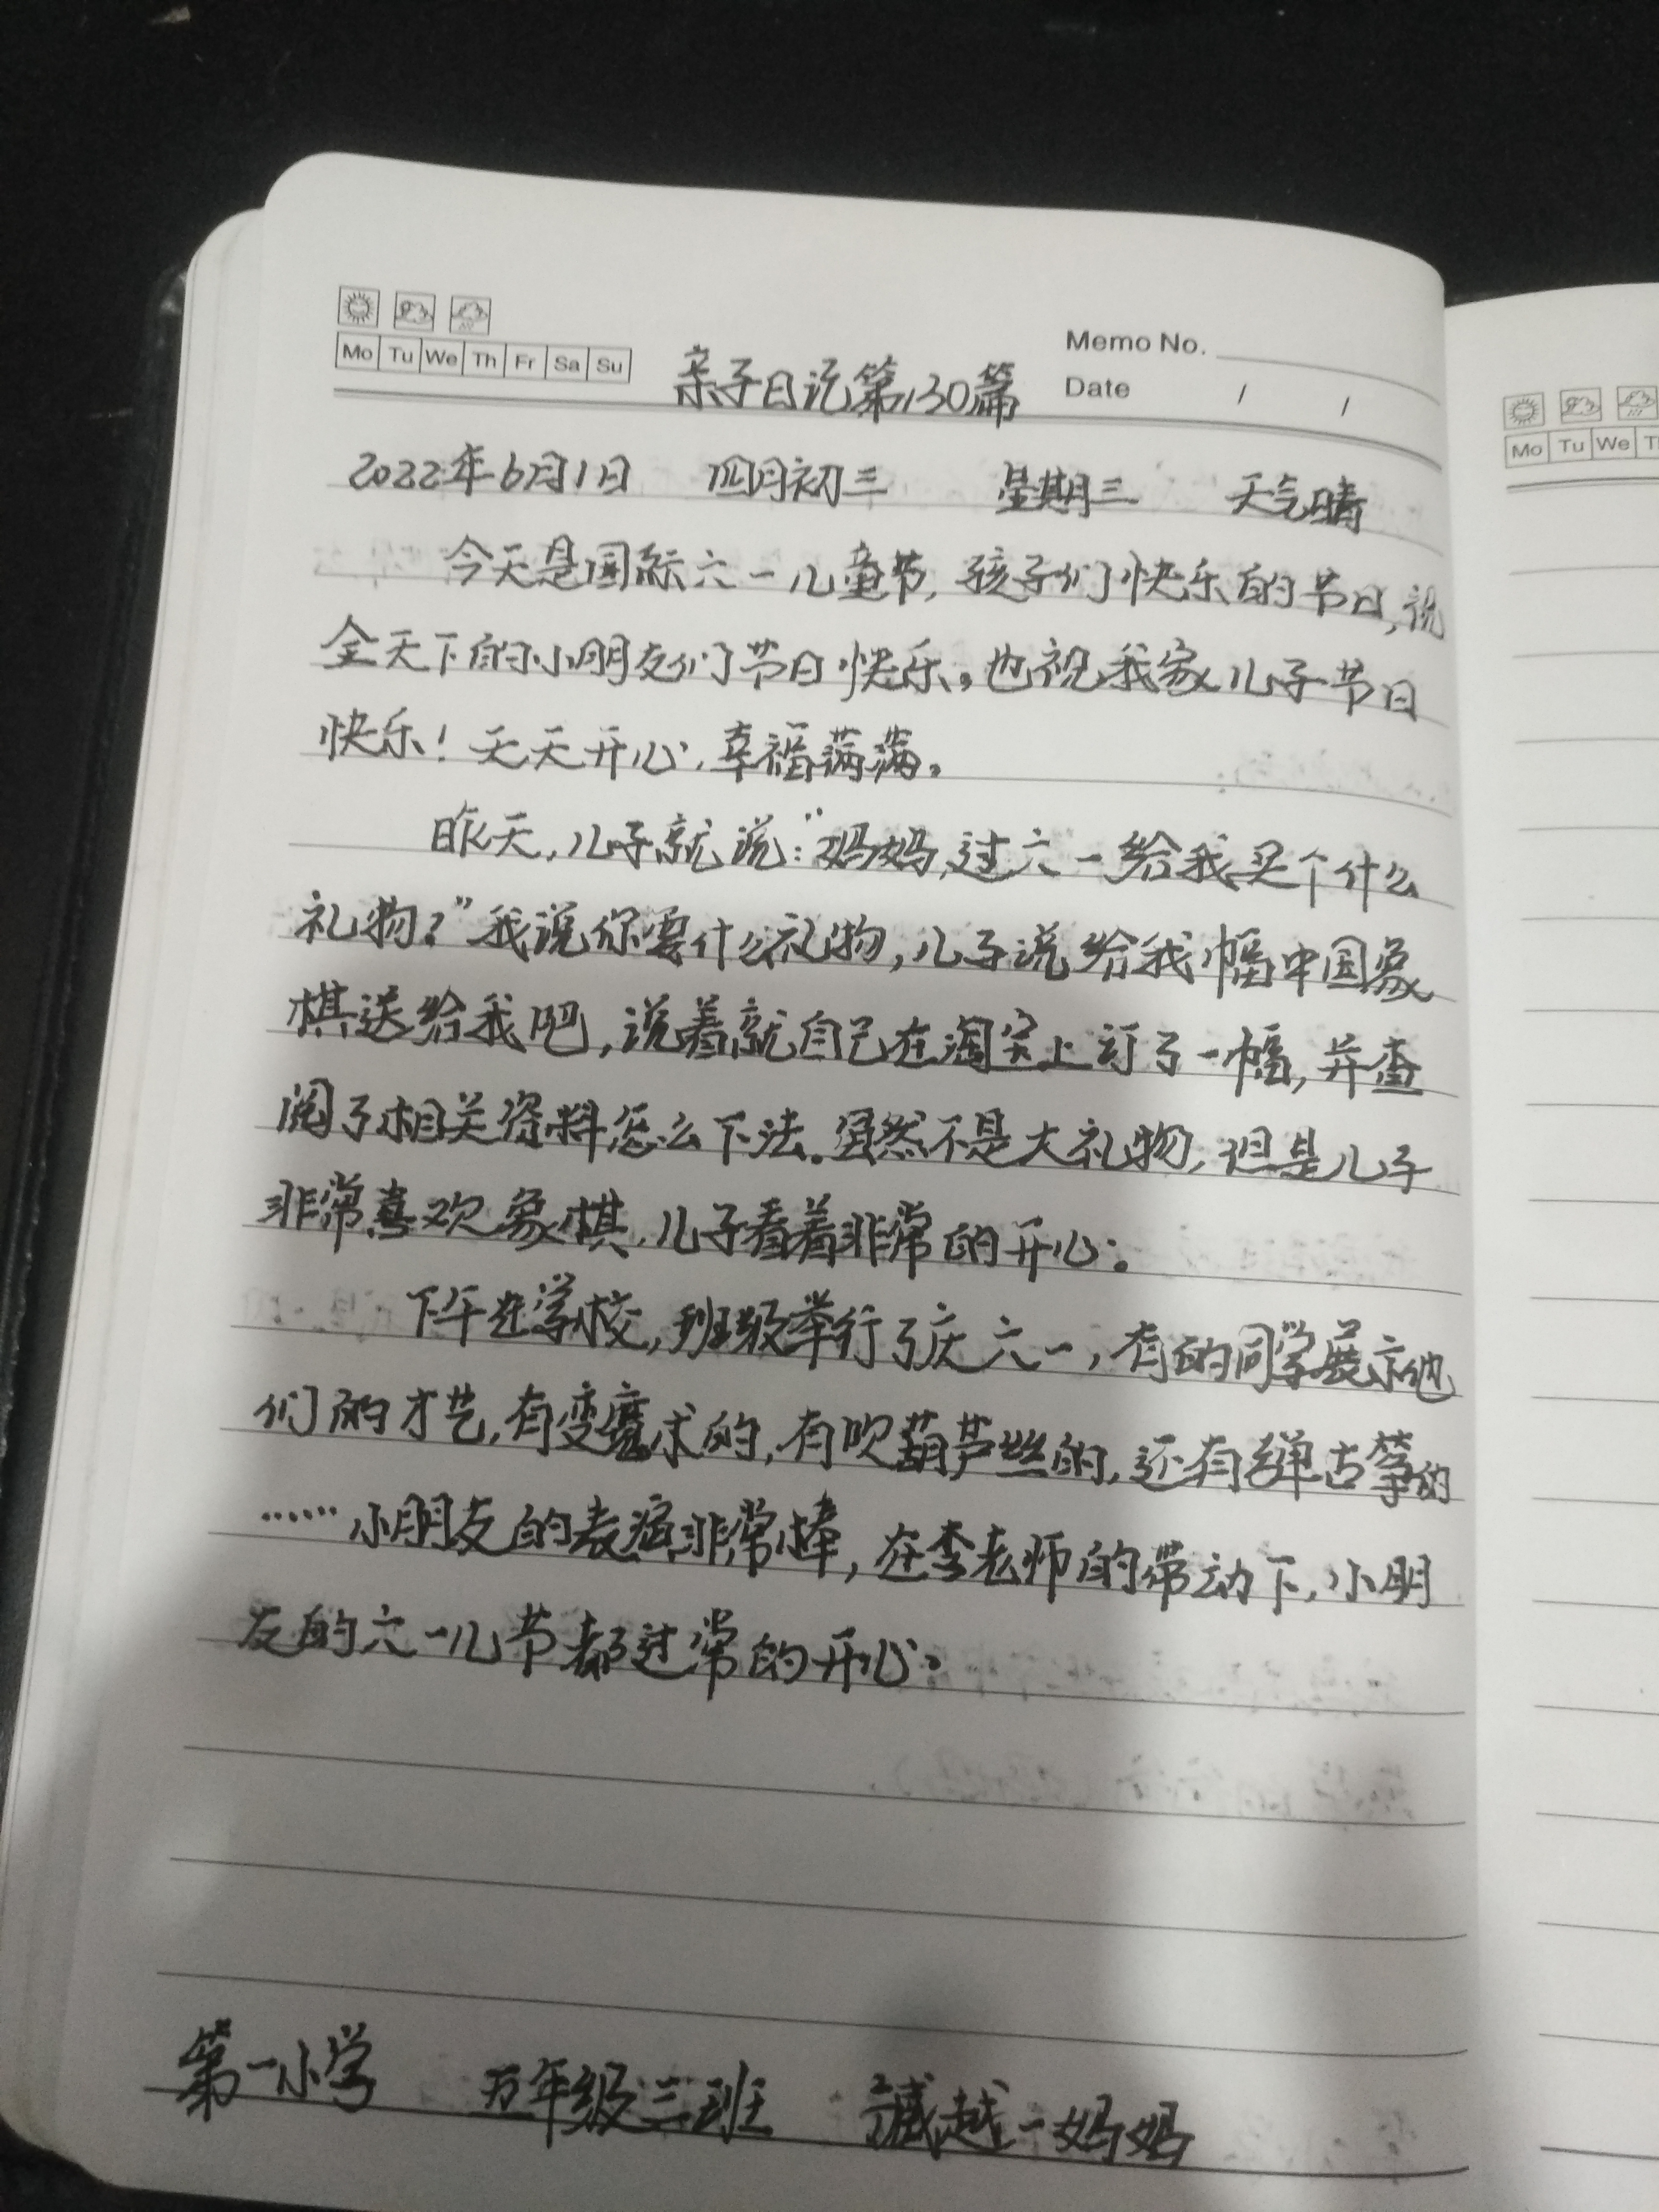 Mo Tu We Th Fr Sa Su
Memo No.
Date / /
亲子日记第130篇
2022年6月1日 四月初三 星期三 天气晴
今天是国际六一儿童节,孩子们快乐的节日,祝
全天下的小朋友们节日快乐。也祝我家儿子节日
快乐!天天开心,幸福满满。
昨天,儿子就说:“妈妈,过六一给我买个什么
礼物?”我说你要什么礼物,儿子说给我幅中国象
棋送给我吧,说着就自己在淘宝上订了一幅,并查
阅了相关资料怎么下法。虽然不是大礼物,但是儿子
非常喜欢象棋,儿子看着非常的开心。
下午在学校,班级举行了庆六一,有的同学展示他
们的才艺,有变魔术的,有吹葫芦丝的,还有弹古筝的
……小朋友的表演非常棒,在李老师的带动下,小朋
友的六一儿节都过常的开心。
第一小学 五年级三班 越一妈妈
Mo Tu We